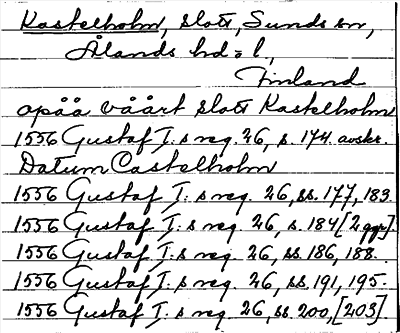 Kastelholm, slott, Sunds sn,
Ålands hd o l.,
Finland
opåå våårt slott Kastelholm
1556 Gustaf I:s reg. 26, s. 174 avskr.
Datum Castelholm
1556 Gustaf I:s reg. 26, ss. 177, 183.
1556 Gustaf I:s reg. 26, s. 184 [2 ggr].
1556 Gustaf I:s reg. 26, ss. 186, 188.
1556 Gustaf I:s reg. 26, ss. 191, 195.
1556 Gustaf I:s reg. 26, ss. 200, [203].